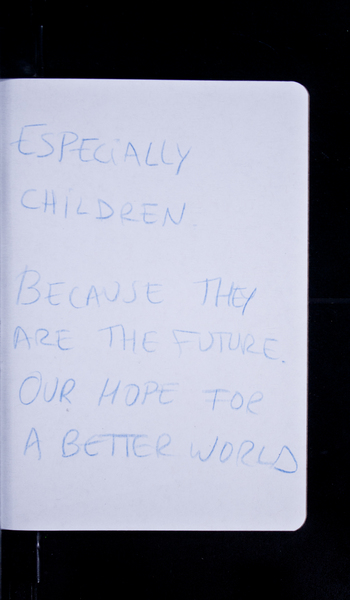 ESPECiALLY
CHiLDREN
BECAUSE THEY
ARE THE FUTURE.
OUR HOPE FOR
A BETTER WORLD